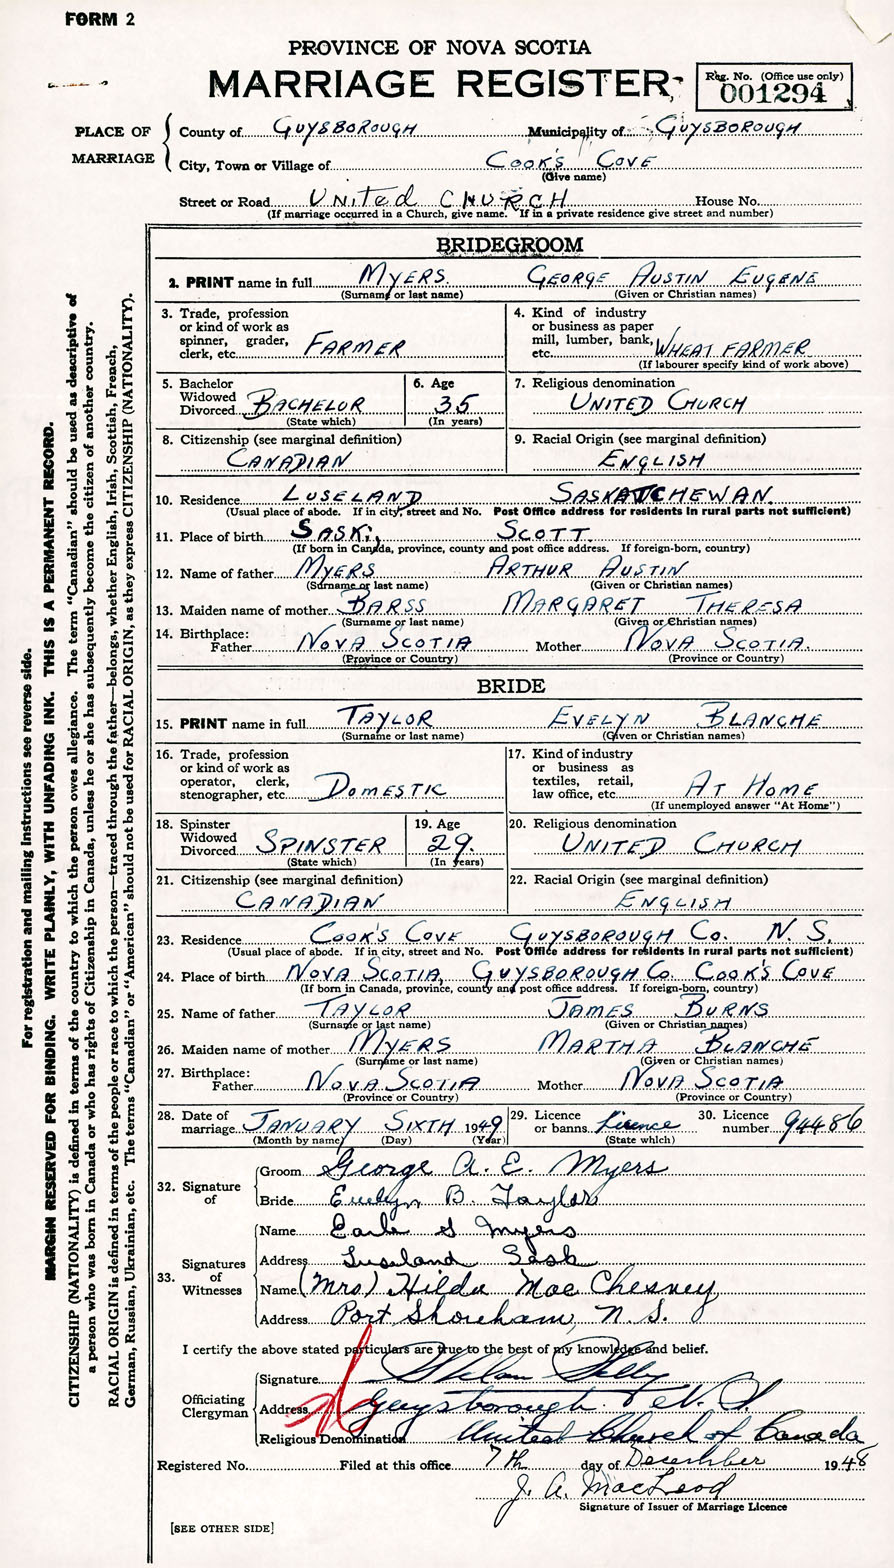 FORM 2
PROVINCE OF NOVA SCOTIA
MARRIAGE REGISTER
Reg. No. (Office use only)
001294
PLACE OF MARRIAGE
County of GUYSBOROUGH Municipality of GUYSBOROUGH
City, Town or Village of COOK'S COVE
(Give name)
Street or Road UNITED CHURCH House No.
(If marriage occurred in a Church, give name. If in a private residence give street and number)
BRIDEGROOM
2. PRINT name in full MYERS GEORGE AUSTIN EUGENE
(Surname or last name) (Given or Christian names)
3. Trade, profession or kind of work as spinner, grader, clerk, etc. FARMER
4. Kind of industry or business as paper mill, lumber, bank, etc. WHEAT FARMER
(If labourer specify kind of work above)
5. Bachelor Widowed Divorced BACHELOR
(State which)
6. Age 35
(In years)
7. Religious denomination
UNITED CHURCH
8. Citizenship (see marginal definition)
CANADIAN
9. Racial Origin (see marginal definition)
ENGLISH
10. Residence LUSELAND SASKATCHEWAN
(Usual place of abode. If in city, street and No. Post Office address for residents in rural parts not sufficient)
11. Place of birth SASK; SCOTT
(If born in Canada, province, county and post office address. If foreign-born, country)
12. Name of father MYERS ARTHUR AUSTIN
(Surname or last name) (Given or Christian names)
13. Maiden name of mother BARSS MARGARET THERESA
(Surname or last name) (Given or Christian names)
14. Birthplace:
Father NOVA SCOTIA Mother NOVA SCOTIA.
(Province or Country) (Province or Country)
BRIDE
15. PRINT name in full TAYLOR EVELYN BLANCHE
(Surname or last name) (Given or Christian names)
16. Trade, profession or kind of work as operator, clerk, stenographer, etc. DOMESTIC
17. Kind of industry or business as textiles, retail, law office, etc. AT HOME
(If unemployed answer "At Home")
18. Spinster Widowed Divorced SPINSTER
(State which)
19. Age 29.
(In years)
20. Religious denomination
UNITED CHURCH
21. Citizenship (see marginal definition)
CANADIAN
22. Racial Origin (see marginal definition)
ENGLISH
23. Residence COOK'S COVE GUYSBOROUGH CO. N. S.
(Usual place of abode. If in city, street and No. Post Office address for residents in rural parts not sufficient)
24. Place of birth NOVA SCOTIA, GUYSBOROUGH CO. COOK'S COVE
(If born in Canada, province, county and post office address. If foreign-born, country)
25. Name of father TAYLOR JAMES BURNS
(Surname or last name) (Given or Christian names)
26. Maiden name of mother MYERS MARTHA BLANCHE
(Surname or last name) (Given or Christian names)
27. Birthplace:
Father NOVA SCOTIA Mother NOVA SCOTIA
(Province or Country) (Province or Country)
28. Date of marriage JANUARY SIXTH 1949
(Month by name) (Day) (Year)
29. Licence or banns Licence
(State which)
30. Licence number 94486
32. Signature of
Groom George A. E. Myers
Bride Evelyn B. Taylor
33. Signatures of Witnesses
Name Earle S Myers
Address Luseland Sask
Name (Mrs.) Hilda Mac Chesney
Address Port Shoreham, N. S.
I certify the above stated particulars are true to the best of my knowledge and belief.
Officiating Clergyman
Signature
Address Guysborough N. S.
Religious Denomination United Church of Canada
Registered No. Filed at this office 7th day of December 1948
J. A. MacLeod
Signature of Issuer of Marriage Licence
[SEE OTHER SIDE]
For registration and mailing Instructions see reverse side.
MARGIN RESERVED FOR BINDING. WRITE PLAINLY, WITH UNFADING INK. THIS IS A PERMANENT RECORD.
CITIZENSHIP (NATIONALITY) is defined in terms of the country to which the person owes allegiance. The term "Canadian" should be used as descriptive of
a person who was born in Canada or who has rights of Citizenship in Canada, unless he or she has subsequently become the citizen of another country.
RACIAL ORIGIN is defined in terms of the people or race to which the person—traced through the father—belongs, whether English, Irish, Scottish, French,
German, Russian, Ukrainian, etc. The terms "Canadian" or "American" should not be used for RACIAL ORIGIN, as they express CITIZENSHIP (NATIONALITY).